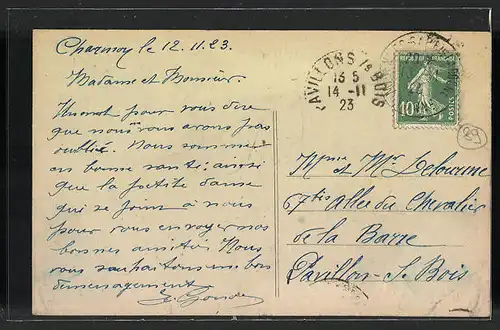 Charmoy le 12.11.23
Madame et Monsieur.
Un mot pour vous dire
que nous vous avons pas
oublié. Nous sommes
en bonne santé: ainsi
que la petite dame
qui se joint à nous
pour vous envoyer nos
bonnes amitiés. Nous
vous souhaitons un bon
demenagement
PAVILLONS Ss BOIS
13 5
14 - 11
23
REPUBLIQUE FRANÇAISE
10c
POSTES
29
Mme et Mr
67 bis Allée du Chevalier
de la Barre
Pavillons-S. Bois